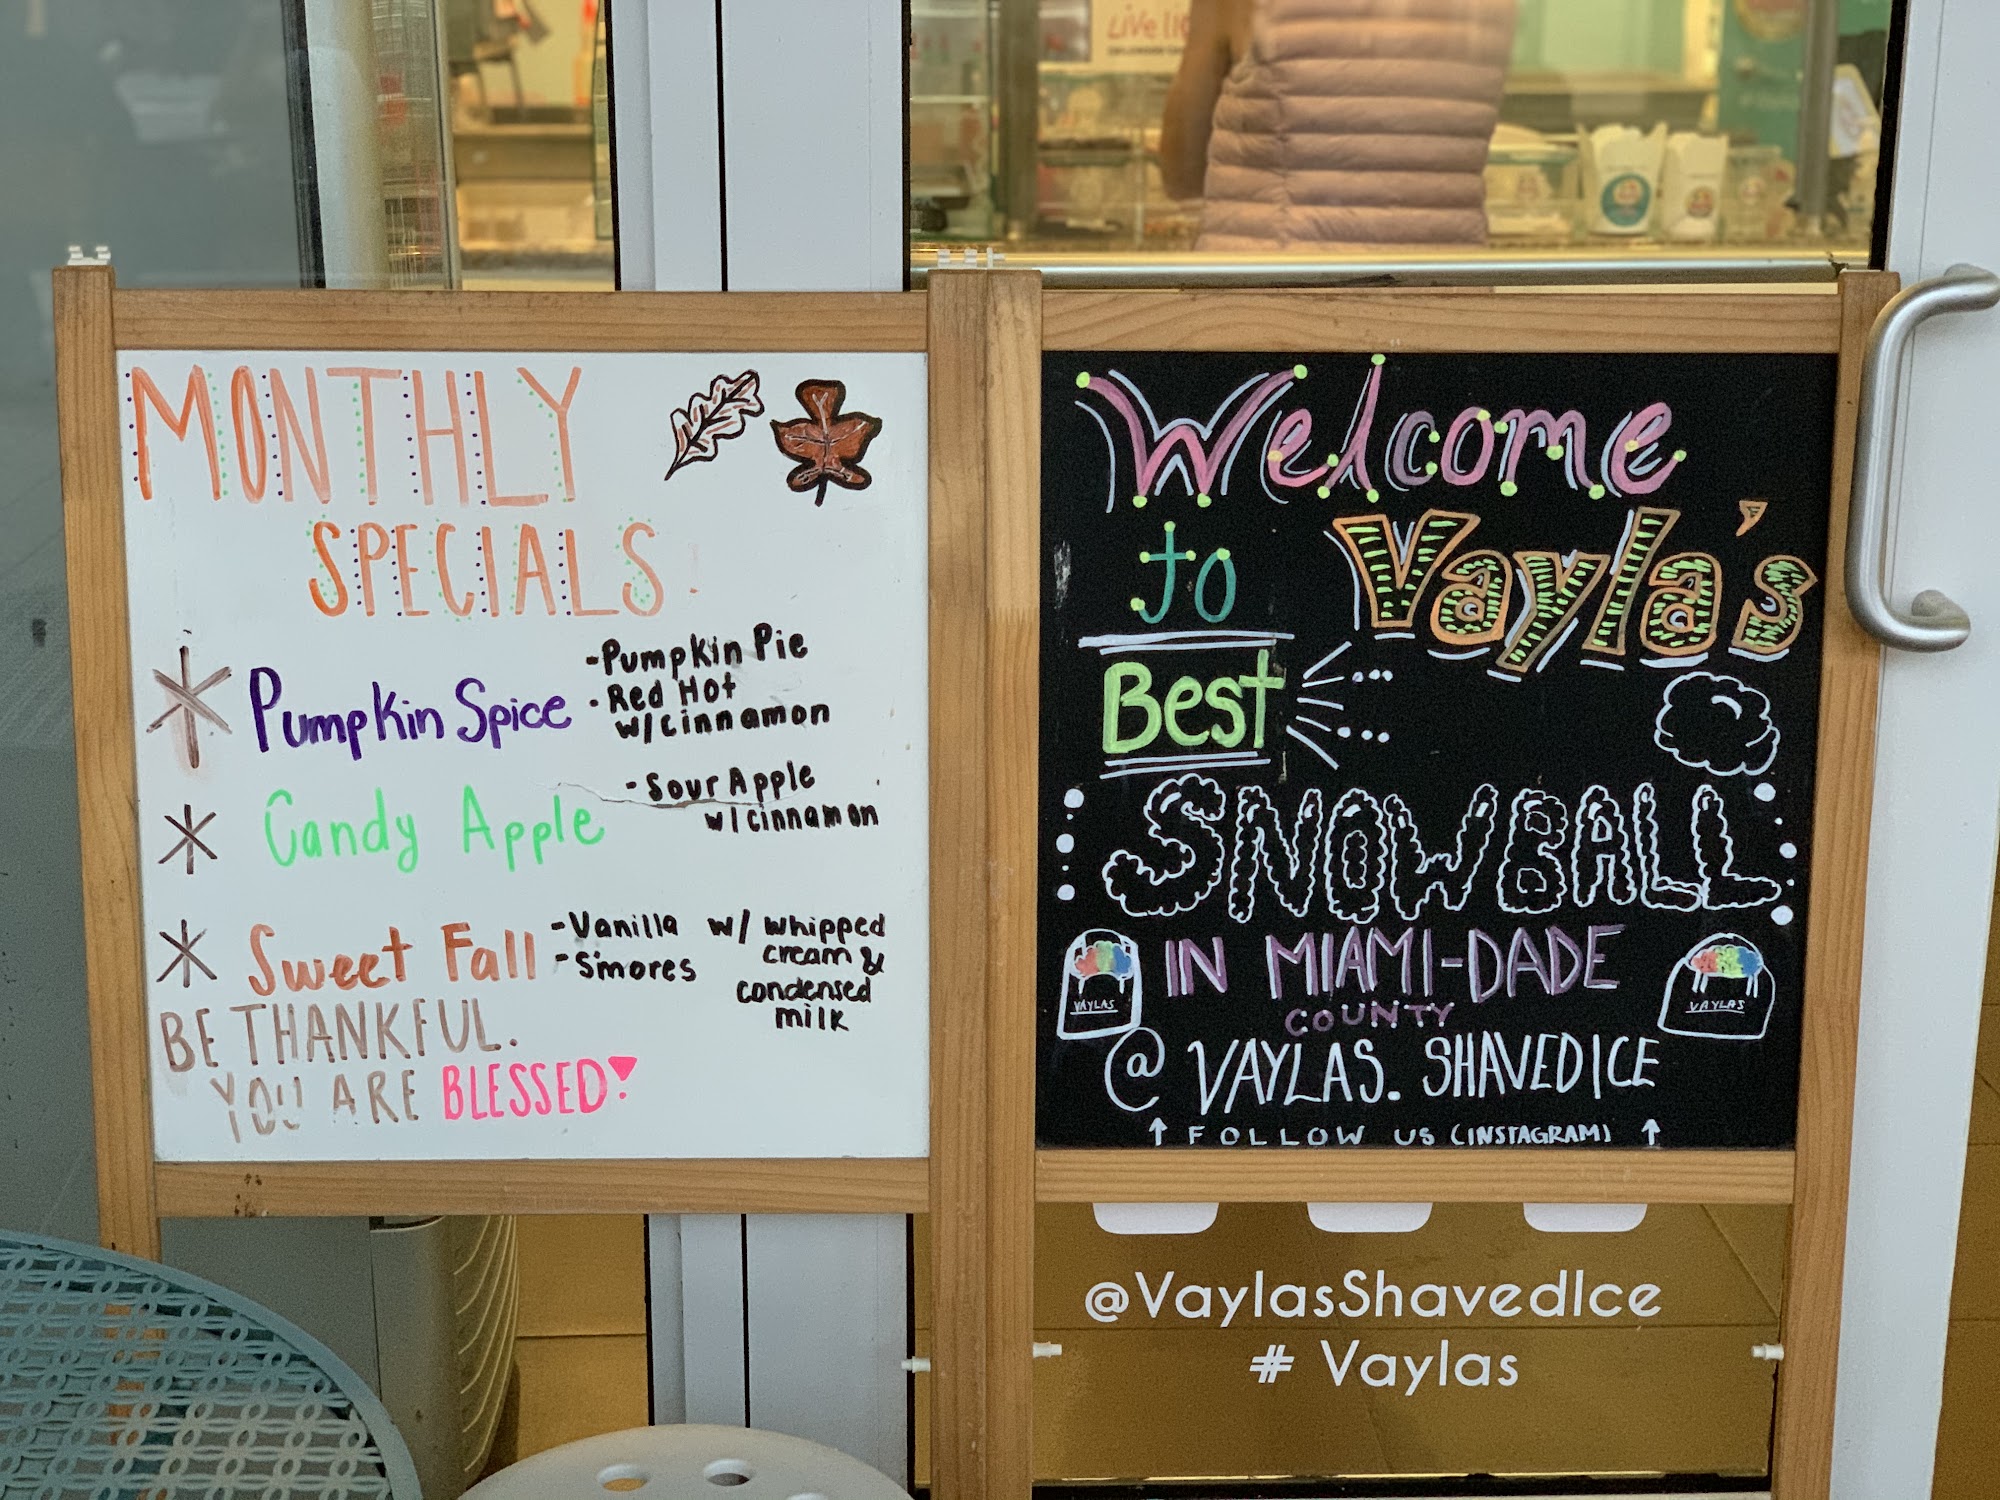 MONTHLY
SPECIALS.
Pumpkin Spice
-Pumpkin Pie
-Red Hot
w/cinnamon
Candy Apple
-Sour Apple
w/cinnamon
Sweet Fall
-Vanilla
-S'mores
w/ whipped
cream &
condensed
milk
BE THANKFUL.
YOU ARE BLESSED!
Welcome
to Vayla's
Best
SNOWBALL
IN MIAMI-DADE
COUNTY
VAYLAS
VAYLAS
@VAYLAS.SHAVEDICE
↑ FOLLOW US (INSTAGRAM) ↑
@VaylasShavedIce
# Vaylas